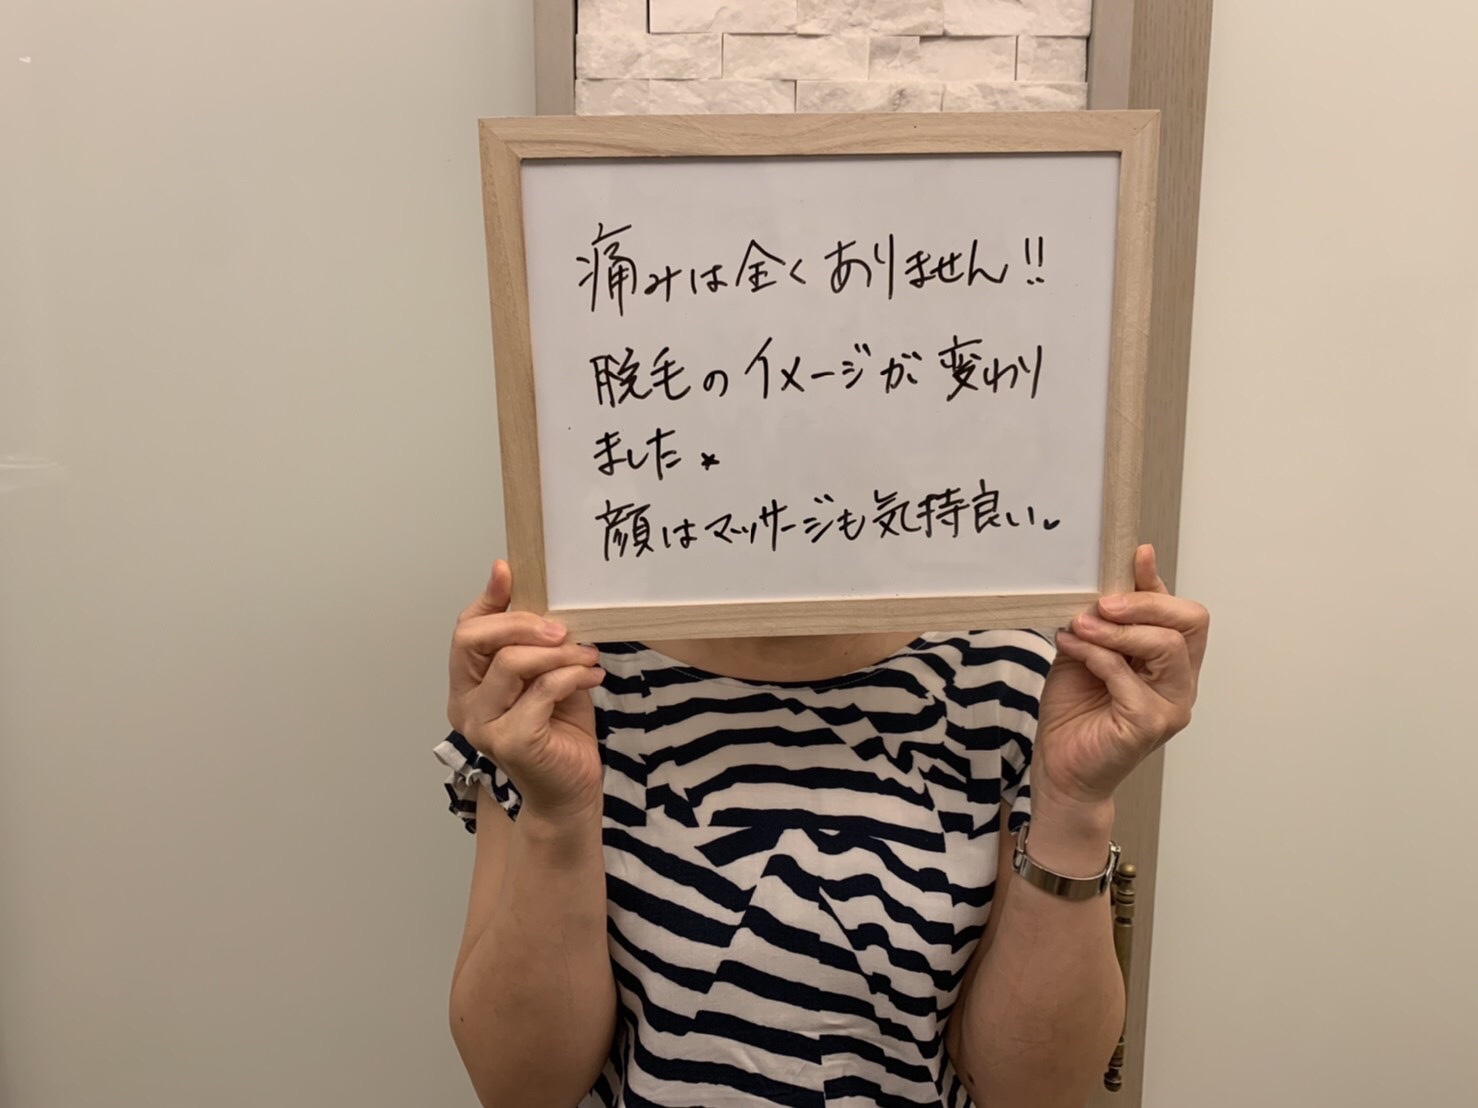 痛みは全くありません!!
脱毛のイメージが変わり
ました★
顔はマッサージも気持良い♥